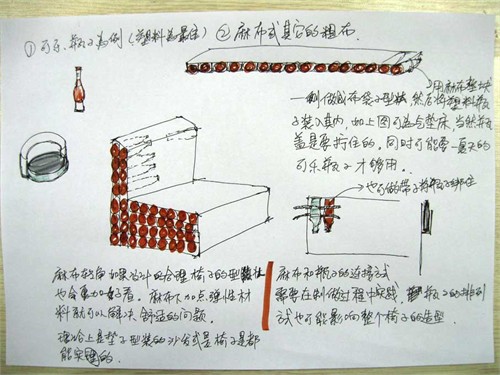 ①可乐瓶子为例(塑料为最佳) ②麻布或其它的粗布.
用麻布整块
一制做成布袋子型状然后将塑料瓶
子装入其内,如上图可为气垫床,当然瓶
盖是要拧住的,同时可能要一定的
可乐瓶子才够用.
也可做带子将瓶子绑住
麻布袋子如果设计的合理椅子的型状
也会更加好看. 麻布下加点弹性材
料就可以解决舒适的问题.
理论上是垫子型装的沙发或是椅子是都
能实现的.
麻布和瓶子的连接方式
需要在制做过程中实践, 瓶子的排列
式也可能影响整个椅子的造型.